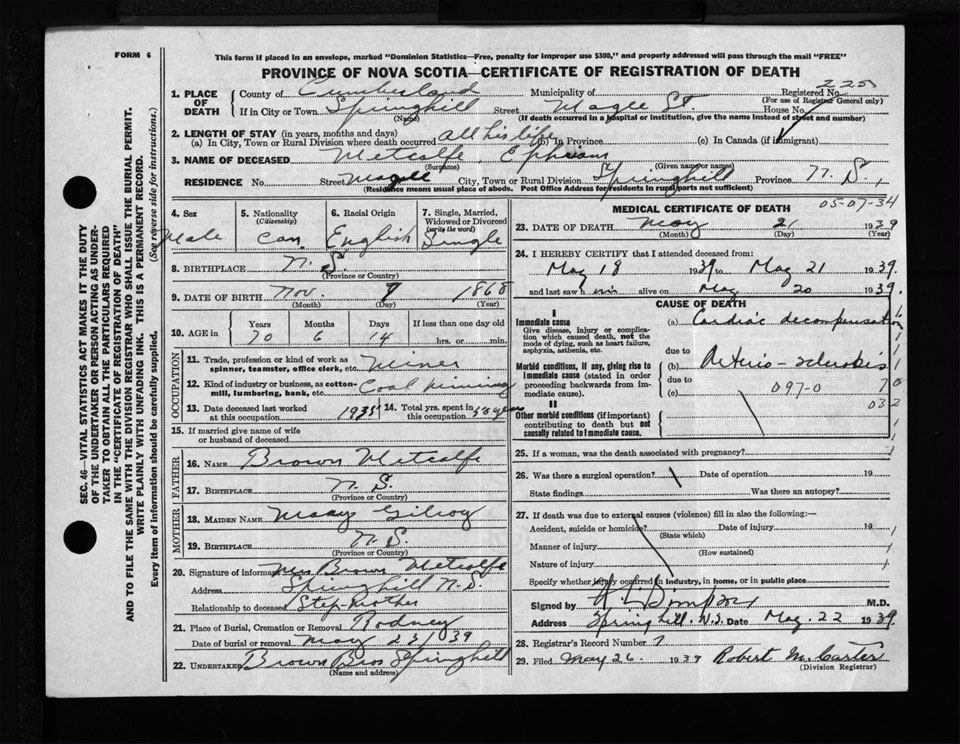 FORM 6
This form if placed in an envelope, marked "Dominion Statistics—Free, penalty for improper use $300," and properly addressed will pass through the mail "FREE"
PROVINCE OF NOVA SCOTIA—CERTIFICATE OF REGISTRATION OF DEATH
SEC. 46—VITAL STATISTICS ACT MAKES IT THE DUTY
OF THE UNDERTAKER OR PERSON ACTING AS UNDER-
TAKER TO OBTAIN ALL THE PARTICULARS REQUIRED
IN THE "CERTIFICATE OF REGISTRATION OF DEATH"
AND TO FILE THE SAME WITH THE DIVISION REGISTRAR WHO SHALL ISSUE THE BURIAL PERMIT.
WRITE PLAINLY WITH UNFADING INK. THIS IS A PERMANENT RECORD.
Every item of information should be carefully supplied. (See reverse side for instructions.)
1. PLACE OF DEATH County of Cumberland Municipality of Registered No. 225
(For use of Registrar General only)
If in City or Town Springhill Street Magee St. House No.
(Name) (If death occurred in a hospital or institution, give the name instead of street and number)
2. LENGTH OF STAY (in years, months and days)
(a) In City, Town or Rural Division where death occurred all his life (b) In Province (c) In Canada (if immigrant)
3. NAME OF DECEASED Metcalfe, Ephriam
(Surname) (Given name or names)
RESIDENCE No. Street Magee St City, Town or Rural Division Springhill Province N. S.
(Residence means usual place of abode. Post Office Address for residents in rural parts not sufficient)
4. Sex Male
5. Nationality (Citizenship) Can.
6. Racial Origin English
7. Single, Married, Widowed or Divorced (write the word) Single
8. BIRTHPLACE N. S.
(Province or Country)
9. DATE OF BIRTH Nov. 7 1868
(Month) (Day) (Year)
10. AGE in Years 70 Months 6 Days 14 If less than one day old hrs. or min.
OCCUPATION
11. Trade, profession or kind of work as spinner, teamster, office clerk, etc. Miner
12. Kind of industry or business, as cotton-mill, lumbering, bank, etc. Coal mining
13. Date deceased last worked at this occupation 1935
14. Total yrs. spent in this occupation 58 years
15. If married give name of wife or husband of deceased
FATHER
16. NAME Brown Metcalfe
17. BIRTHPLACE N. S.
(Province or Country)
MOTHER
18. MAIDEN NAME Mary Gilroy
19. BIRTHPLACE N. S.
(Province or Country)
20. Signature of informant Mrs Brown Metcalfe
Address Springhill N. S.
Relationship to deceased Step-mother
21. Place of Burial, Cremation or Removal Rodney
Date of burial or removal May 23/39
22. UNDERTAKER Brown Bros Springhill
(Name and address)
MEDICAL CERTIFICATE OF DEATH
05-07-34
23. DATE OF DEATH May 21 1939
(Month) (Day) (Year)
24. I HEREBY CERTIFY that I attended deceased from:
May 18 1939 to May 21 1939.
and last saw him alive on May 20 1939.
CAUSE OF DEATH
I
Immediate cause
Give disease, injury or complication which caused death, not the mode of dying, such as heart failure, asphyxia, asthenia, etc.
(a) Cardiac decompensation
due to
Morbid conditions, if any, giving rise to immediate cause (stated in order proceeding backwards from immediate cause).
Arterio-sclerosis
due to 097-0
(c)
032
II
Other morbid conditions (if important) contributing to death but not causally related to immediate cause.
25. If a woman, was the death associated with pregnancy?
26. Was there a surgical operation? Date of operation 19
State findings Was there an autopsy?
27. If death was due to external causes (violence) fill in also the following:—
Accident, suicide or homicide? Date of injury 19
(State which)
Manner of injury
(How sustained)
Nature of injury
Specify whether injury occurred in industry, in home, or in public place
Signed by M.D.
Address Springhill, N.S. Date May. 22 1939.
28. Registrar's Record Number 7
29. Filed May 26 1939 Robert M. Carter
(Division Registrar)